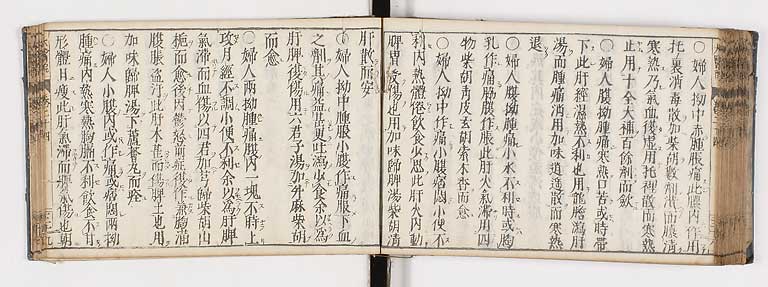 ○婦人拗中赤腫脹痛此膿内作用
托裏消毒散加柴胡數劑潰而膿清
寒熱乃氣血復虚用托裡散而寒熱
止用十全大補百餘劑而歛
○婦人腹拗腫痛寒熱口苦或時帶
下此肝經濕熱不利也用龍膽瀉肝
湯而腫痛消用加味逍遥散而寒熱
退
○婦人腹拗腫痛小水不利時或胸
乳作痛脇腹作脹此肝火氣滯用四
物柴胡靑皮玄胡索木香而愈
○婦人拗中作痛小腹痞悶小便不
利内熱體倦飲食少思此肝火内動
脾胃受傷也用加味歸脾湯柴胡清
肝散而安
○婦人拗中腫脹小腹作痛服下血
之劑其痛益甚更吐瀉少食余以爲
肝脾復傷用六君子湯加升麻柴胡
而愈
○婦人兩拗腫痛腹内一塊不時上
攻月經不調小便不利余以爲肝脾
氣滯而血傷以四君加芎歸柴胡山
梔而愈後因鬱怒前症復作兼胸滿
腹脹盗汗此肝木甚而傷脾土也用
加味歸脾湯下蘆薈丸而痊
○婦人小腹内或作痛或痞悶兩拗
腫痛内熱寒熱胸膈不利飲食不甘
形體日瘦此肝氣滯而脾氣傷也朝